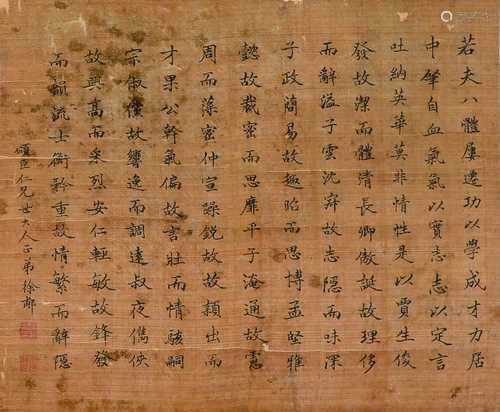 若夫八體屢遷功以學成才力居
中肇自血氣氣以實志志以定言
吐納英華莫非情性是以賈生俊
發故潔而體清長卿傲誕故理侈
而辭溢子雲沈寂故志隱而味深
子政簡易故趣昭而思博孟堅雅
懿故裁密而思靡平子淹通故慮
周而藻密仲宣躁銳故故穎出而
才果公幹氣偏故言壯而情駭嗣
宗俶儻故響逸而調遠叔夜儁俠
故興高而采烈安仁輕敏故鋒發
而韻流士衡矜重故情繁而辭隱
頌臣仁兄世大人正弟徐郙